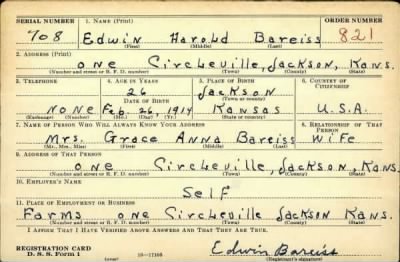 SERIAL NUMBER 1. NAME (Print) ORDER NUMBER
708 Edwin Harold Bareiss 821
(First) (Middle) (Last)
2. ADDRESS (Print)
one Circleville, Jackson, Kans.
(Number and street or R. F. D. number) (Town) (County) (State)
3. TELEPHONE 4. AGE IN YEARS 5. PLACE OF BIRTH 6. COUNTRY OF CITIZENSHIP
26 Jackson
DATE OF BIRTH (Town or county)
None Feb. 26, 1914 Kansas U.S.A.
(Exchange) (Number) (Mo.) (Day) (Yr.) (State or country)
7. NAME OF PERSON WHO WILL ALWAYS KNOW YOUR ADDRESS 8. RELATIONSHIP OF THAT PERSON
Mrs. Grace Anna Bareiss Wife
(Mr., Mrs., Miss) (First) (Middle) (Last)
9. ADDRESS OF THAT PERSON
one Circleville, Jackson, Kans.
(Number and street or R. F. D. number) (Town) (County) (State)
10. EMPLOYER'S NAME
Self
11. PLACE OF EMPLOYMENT OR BUSINESS
Farms one Circleville Jackson Kans.
(Number and street or R. F. D. number) (Town) (County) (State)
I AFFIRM THAT I HAVE VERIFIED ABOVE ANSWERS AND THAT THEY ARE TRUE.
REGISTRATION CARD Edwin Bareiss
D. S. S. Form 1 (over) 16—17105 (Registrant's signature)